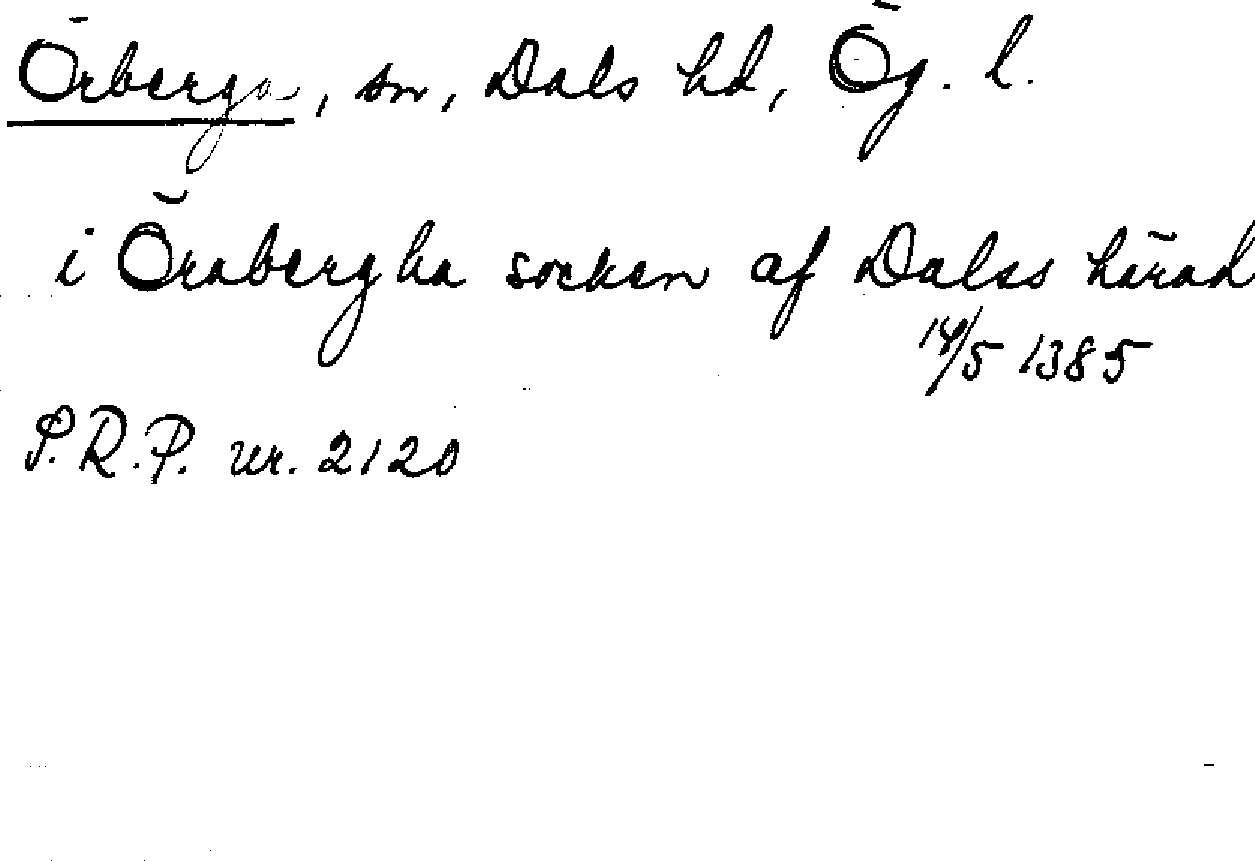 Örberga, sn, Dals hd, Ög. l.
i Örabergha socken af Dalss härad
14/5 1385
P.R.P. nr. 2120